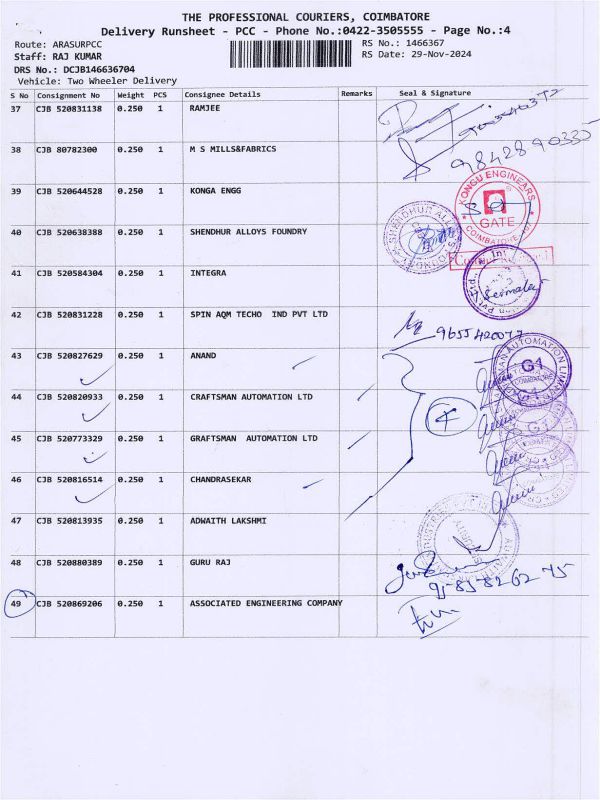 THE PROFESSIONAL COURIERS, COIMBATORE
Delivery Runsheet - PCC - Phone No.:0422-3505555 - Page No.:4
Route: ARASURPCC RS No.: 1466367
Staff: RAJ KUMAR RS Date: 29-Nov-2024
DRS No.: DCJB146636704
Vehicle: Two Wheeler Delivery
S No Consignment No Weight PCS Consignee Details Remarks Seal & Signature
37 CJB 520831138 0.250 1 RAMJEE
38 CJB 80782300 0.250 1 M S MILLS&FABRICS 9842890335
39 CJB 520644528 0.250 1 KONGA ENGG KONGU ENGINEARS GATE COIMBATORE
40 CJB 520638388 0.250 1 SHENDHUR ALLOYS FOUNDRY SHENDHUR
41 CJB 520584304 0.250 1 INTEGRA
42 CJB 520831228 0.250 1 SPIN AQM TECHO IND PVT LTD 9655420077
43 CJB 520827629 0.250 1 ANAND AUTOMATION G1 COIMBATORE
44 CJB 520820933 0.250 1 CRAFTSMAN AUTOMATION LTD 4 G1
45 CJB 520773329 0.250 1 GRAFTSMAN AUTOMATION LTD G1
46 CJB 520816514 0.250 1 CHANDRASEKAR
47 CJB 520813935 0.250 1 ADWAITH LAKSHMI
48 CJB 520880389 0.250 1 GURU RAJ
49 CJB 520869206 0.250 1 ASSOCIATED ENGINEERING COMPANY